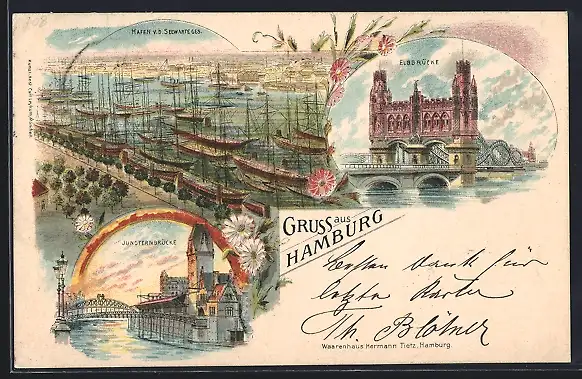 HAFEN V. D. SEEWARTE GES.
ELBBRÜCKE
JUNGFERNBRÜCKE
GRUSS aus
HAMBURG
besten Dank für
letzte Karte
Th.
Waarenhaus Hermann Tietz, Hamburg.